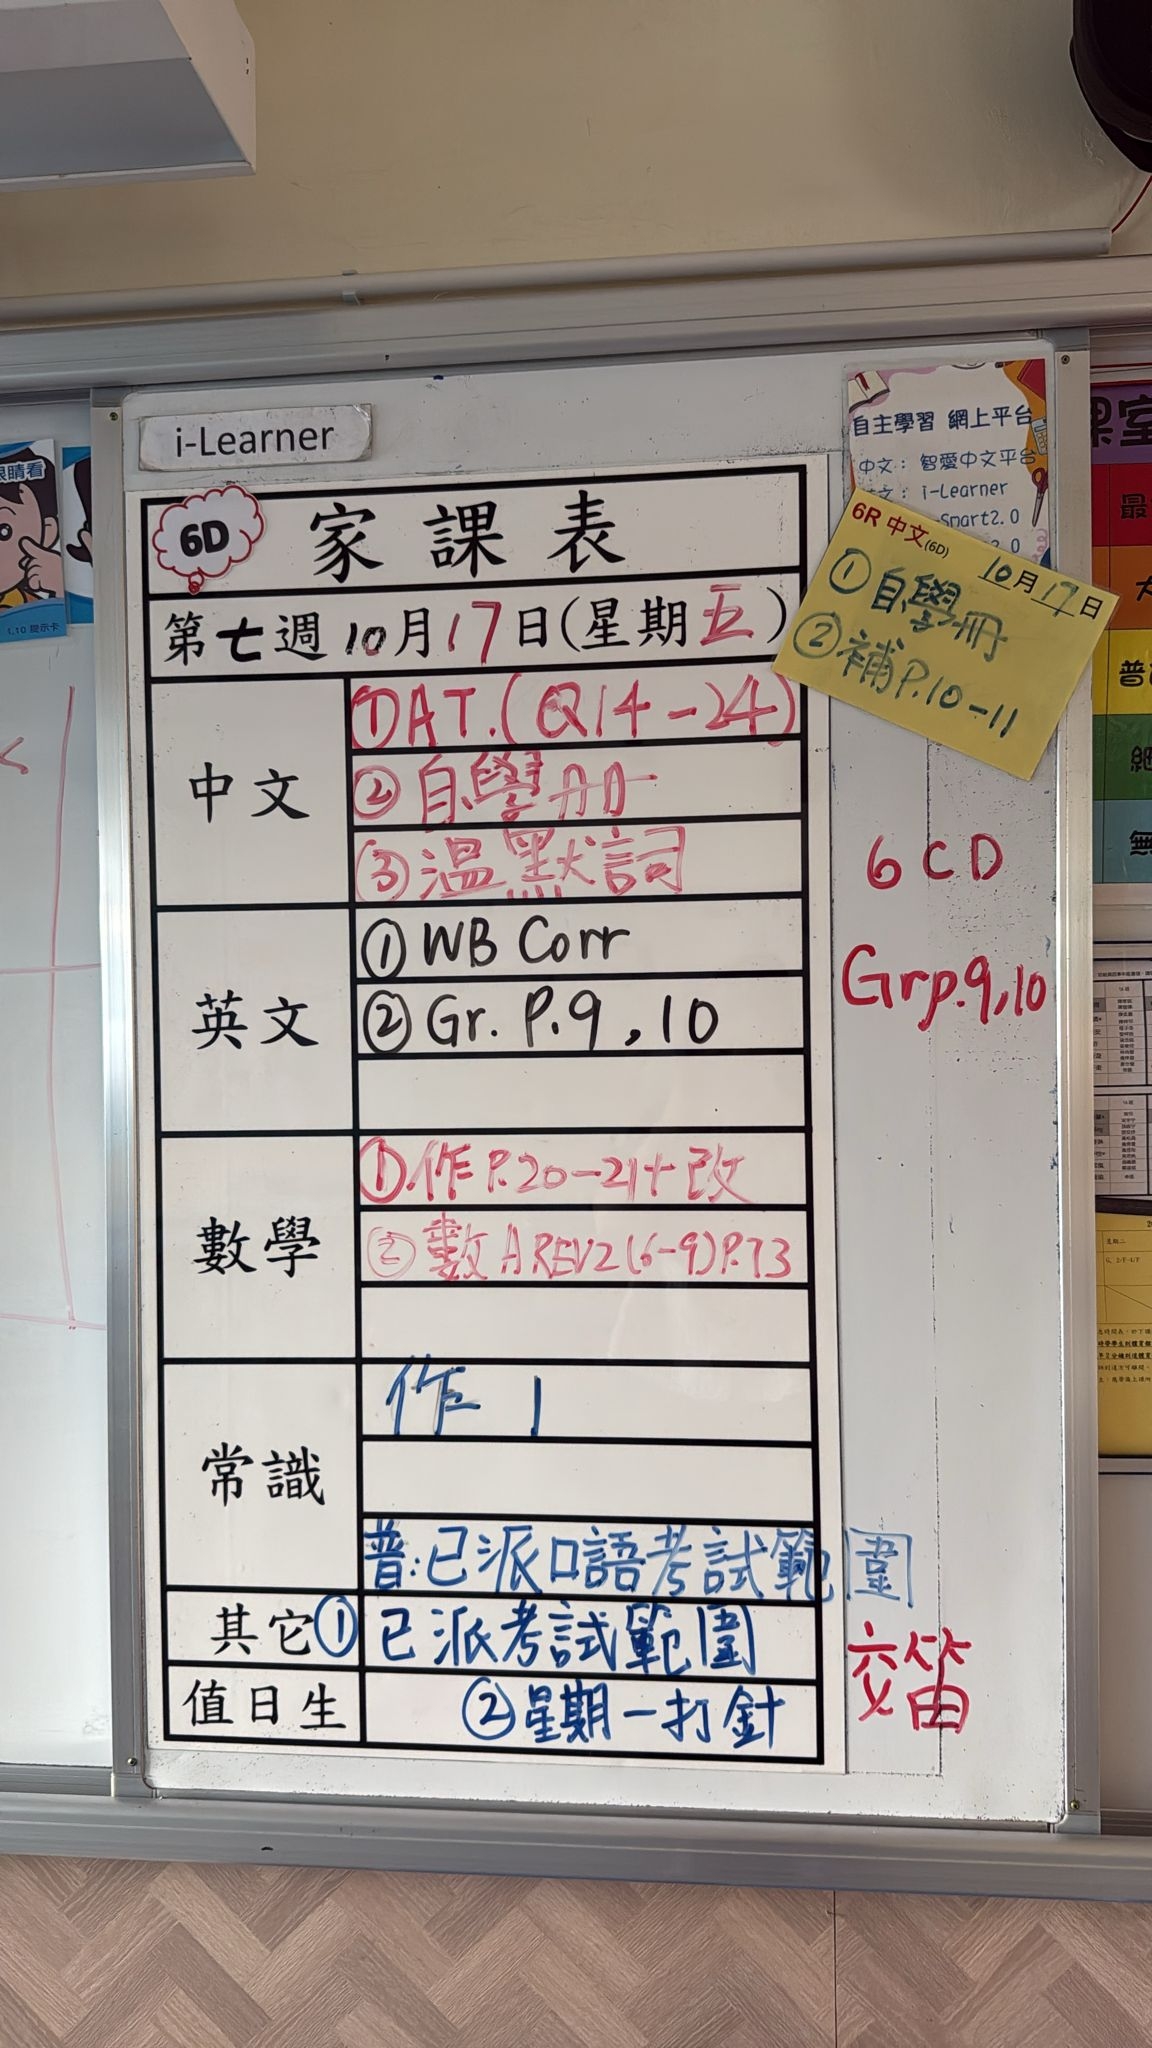 i-Learner
6D
家課表
第七週10月17日(星期五)
中文
①DAT.(Q14-24)
②自學冊
③溫默詞
英文
①WB Corr
②Gr. P.9,10
數學
①作P.20-21+改
②數A REV2(6-9)P.73
常識
作 1
普:已派口語考試範圍
其它① 已派考試範圍
值日生
②星期一打針
自主學習 網上平台
中文: 智愛中文平台
文: i-Learner
Smart2.0
2.0
6R 中文(6D)
10月17日
①自學冊
②補P.10-11
6CD
Grp.9,10
交笛
眼睛看
1.10 提示卡
課室
最
普
無
星期二